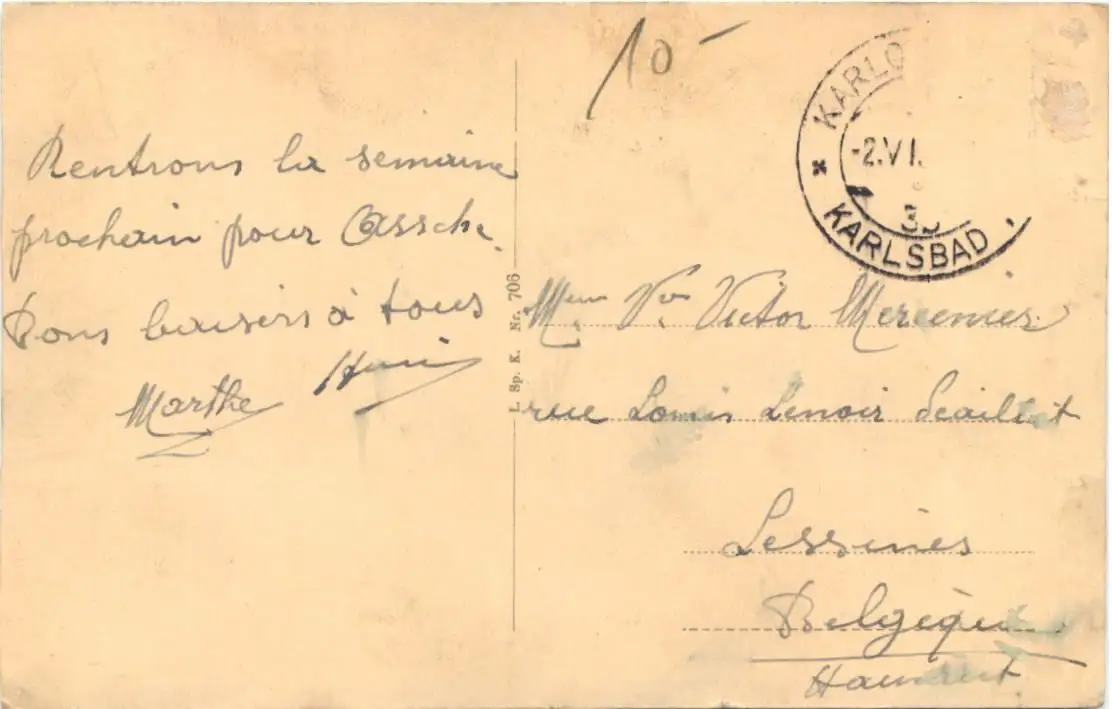 10-
KARLO
-2.VI.
KARLSBAD
Rentrons la semaine
prochain pour Assche.
Bons baisers à tous
Marthe
L. Sp. K. Nr. 706
Vve Victor
rue Louis Lenoir Scaillet
Lessines
Belgique
Hainaut